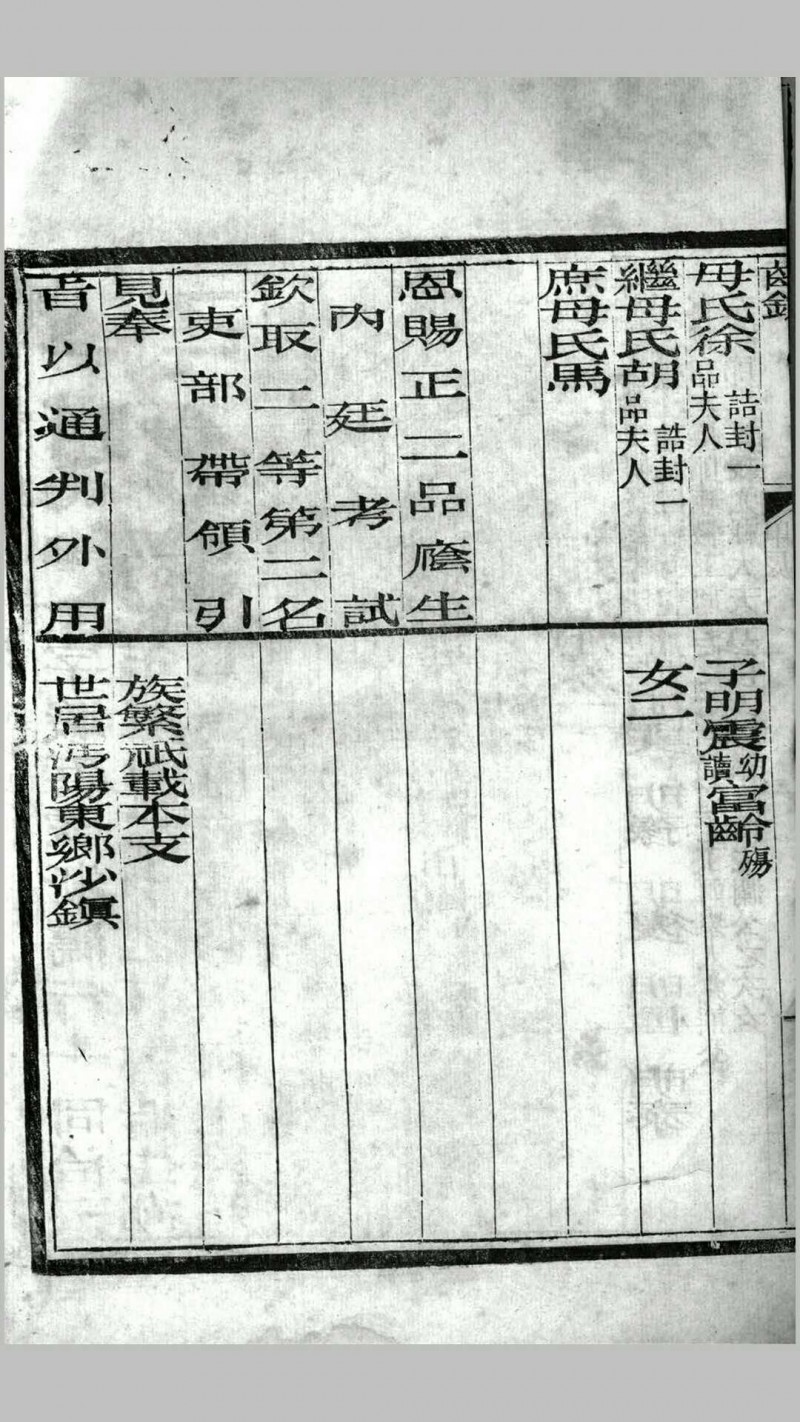 齒錄
母氏徐 誥封一品夫人
繼母氏胡 誥封一品夫人
庶母氏馬
恩賜正二品廕生
內廷考試
欽取二等第二名
吏部帶領引
見奉
旨以通判外用
子明震 幼讀 富齡 殤
女二
族繁祇載本支
世居沔陽東鄉沙鎮